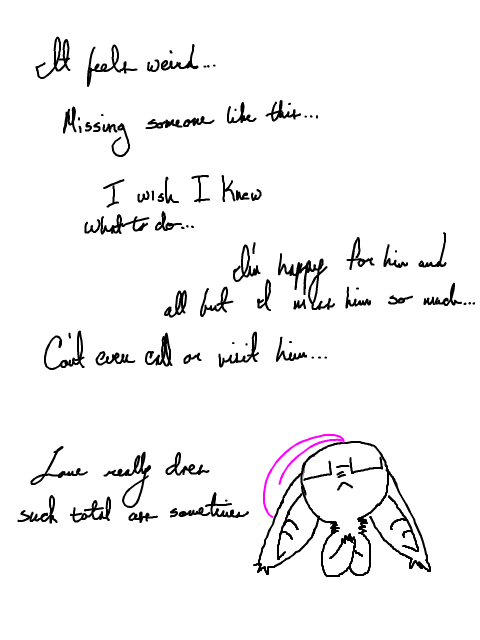 It feels weird...
Missing someone like this...
I wish I knew
what to do...
I'm happy for him and
all but I miss him so much...
Can't even call or visit him...
Love really does
such total ass sometimes